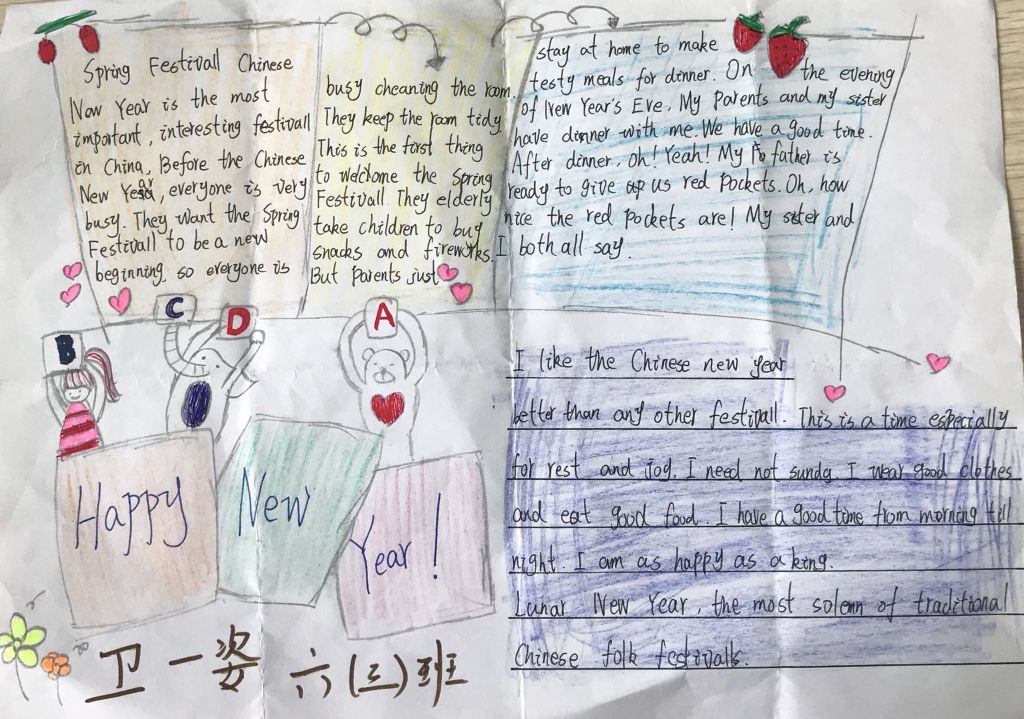 Spring Festivall Chinese
Now Year is the most
important, interesting festivall
in China, Before the Chinese
New Year, everyone is very
busy. They want the Spring
Festivall to be a new
beginning. so everyone is
busy cheaning the room.
They keep the room tidy.
This is the first thing
to welchome the Spring
Festivall. They elderly
take children to buy
snacks and fireworks.
But Parents just
stay at home to make
testy meals for dinner. On the evening
of New Year's Eve, My Parents and my sister
have dinner with me. We have a good time.
After dinner, oh! Yeah! My father is
ready to give up us red Pockets. Oh, how
nice the red pockets are! My sister and
I both all say.
B
C
D
A
Happy
New
Year!
I like the Chinese new year
better than any other festivall. This is a time especially
for rest and joy. I need not sundy. I wear good clothes
and eat good food. I have a good time from morning till
night. I am as happy as a king.
Lunar New Year, the most solemn of traditional
Chinese folk festivalls.
卫一姿 六(三)班